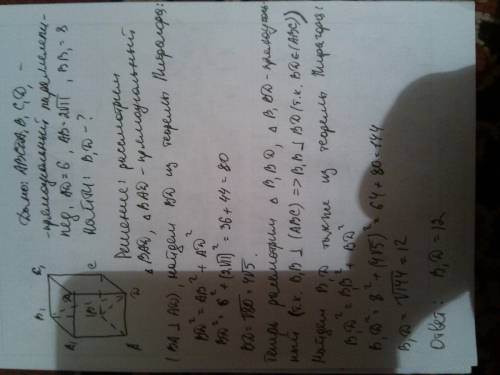 Дано: ABCDA₁B₁C₁D₁ –
- прямоугольный параллелепи-
пед, AD = 6, AB = 2√11, BB₁ = 8
Найти: B₁D - ?
B₁ C₁
A₁ D₁
B C
A D
Решение: рассмотрим
△BAD, △BAD - прямоугольный
(BA ⊥ AD), найдем BD из теоремы Пифагора:
BD² = AB² + AD²
BD² = 6² + (2√11)² = 36 + 44 = 80
BD = √80 = 4√5.
Теперь рассмотрим △B₁BD, △B₁BD - прямоуголь-
ный (т.к. B₁B ⊥ (ABC) => B₁B ⊥ BD (т.к. BD ∈ (ABC))
Найдем B₁D также из теоремы Пифагора:
B₁D² = BB₁² + BD²
B₁D² = 8² + (4√5)² = 64 + 80 = 144
B₁D = √144 = 12
Ответ: B₁D = 12